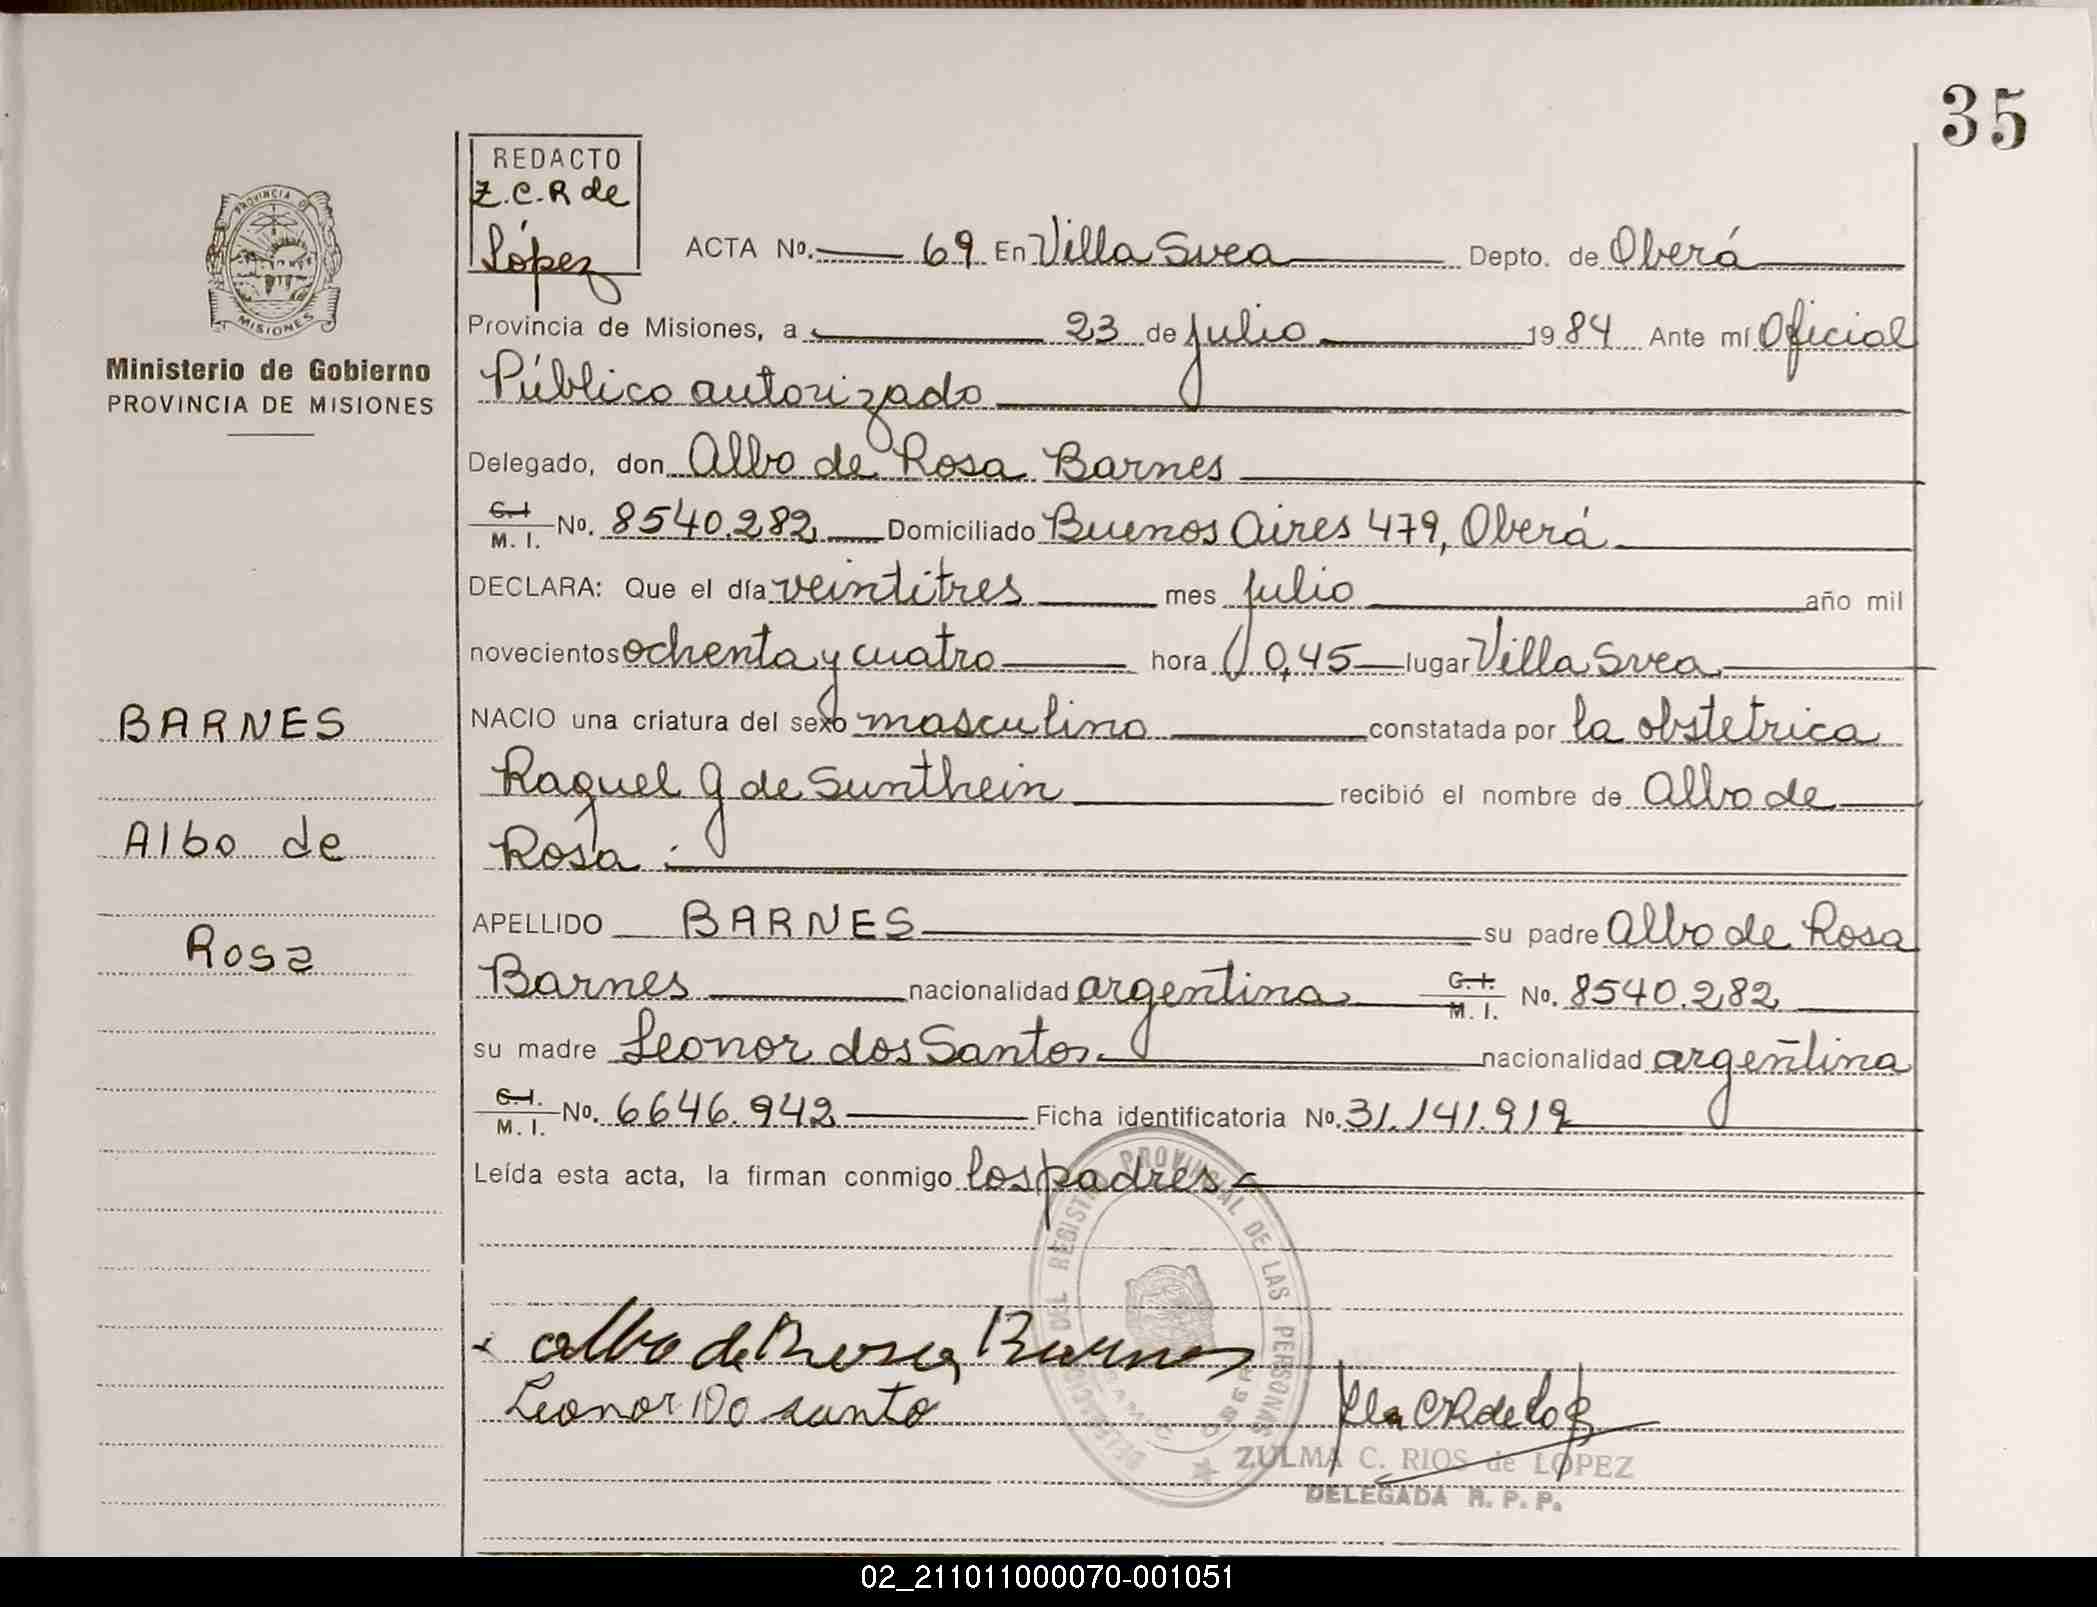 35
REDACTO
Z.C.R de
López
PROVINCIA D
MISIONES
Ministerio de Gobierno
PROVINCIA DE MISIONES
ACTA No. 69 En Villa Svea Depto. de Oberá
Provincia de Misiones, a 23 de julio 1984 Ante mí Oficial
Público autorizado
Delegado, don Albo de Rosa Barnes
C. I
M. I. No. 8540.282 Domiciliado Buenos Aires 479, Oberá
DECLARA: Que el día veintitres mes julio año mil
novecientos ochenta y cuatro hora 0,45 lugar Villa Svea
BARNES
NACIO una criatura del sexo masculino constatada por la obstetrica
Raquel G de Sunthein recibió el nombre de Albo de
Albo de
Rosa
APELLIDO BARNES su padre Albo de Rosa
Rosa
Barnes nacionalidad argentina C. I.
M. I. No. 8540.282
su madre Leonor dos Santos nacionalidad argentina
C. I.
M. I. No. 6646.942 Ficha identificatoria No. 31.141.919
Leída esta acta, la firman conmigo los padres
DELEGACION DEL REGISTRO PROVINCIAL DE LAS PERSONAS
albo de Rosa Barnes
Leonor Do santo
ZULMA C. RIOS de LOPEZ
DELEGADA R. P. P.
02_211011000070-001051